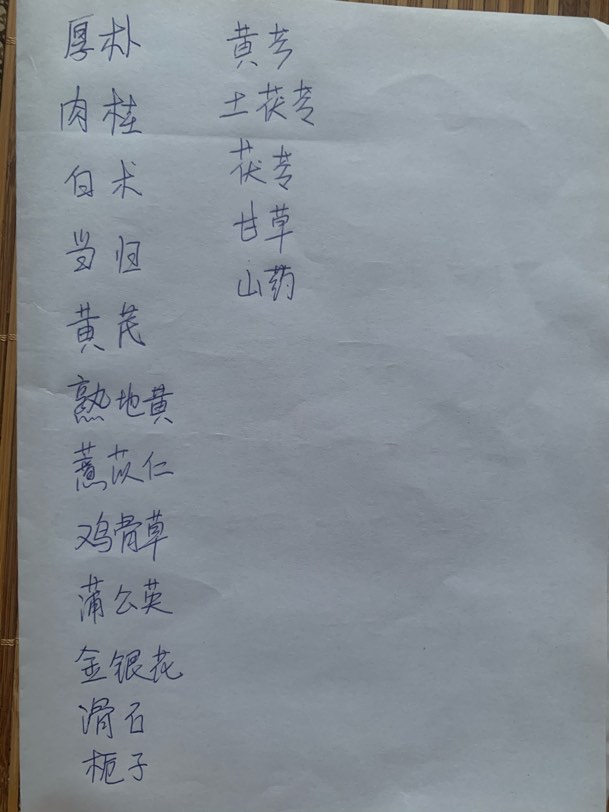 厚朴
肉桂
白术
当归
黄芪
熟地黄
薏苡仁
鸡骨草
蒲公英
金银花
滑石
栀子
黄芩
土茯苓
茯苓
甘草
山药